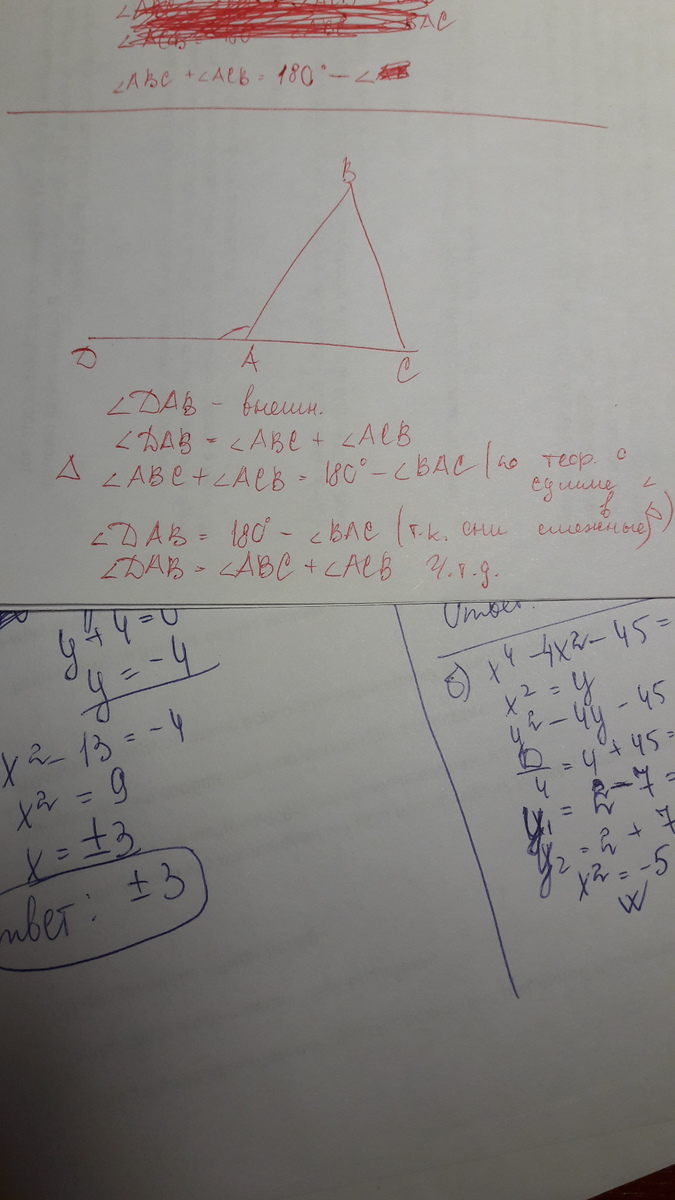 ∠ABC + ∠ACB = 180° - ∠
B
D
A
C
∠DAB - внешн.
∠DAB = ∠ABC + ∠ACB
Δ ∠ABC + ∠ACB = 180° - ∠BAC (по теор. о
сумме ∠
в Δ)
∠DAB = 180° - ∠BAC (т.к. они смежные)
∠DAB = ∠ABC + ∠ACB Ч.т.д.
y + 4 = 0
y = -4
x² - 13 = -4
x² = 9
x = ±3
твет: ±3
Ответ:
x⁴ - 4x² - 45 =
x² = y
y² - 4y - 45
D/4 = 4 + 45 =
y₁ = 2 - 7 =
y₂ = 2 + 7
x² = -5